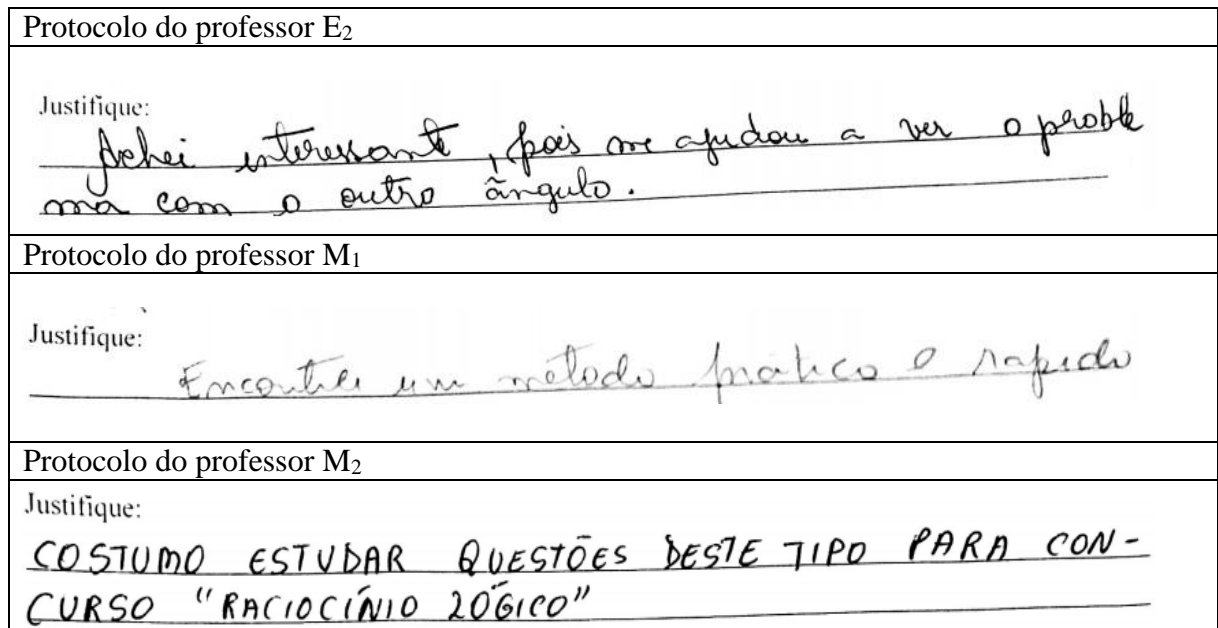 Protocolo do professor E₂
Justifique:
Achei interessante, pois me ajudou a ver o proble
ma com o outro ângulo.
Protocolo do professor M₁
Justifique:
Encontrei um método prático e rapido
Protocolo do professor M₂
Justifique:
COSTUMO ESTUDAR QUESTÕES DESTE TIPO PARA CON-
CURSO "RACIOCÍNIO LÓGICO"